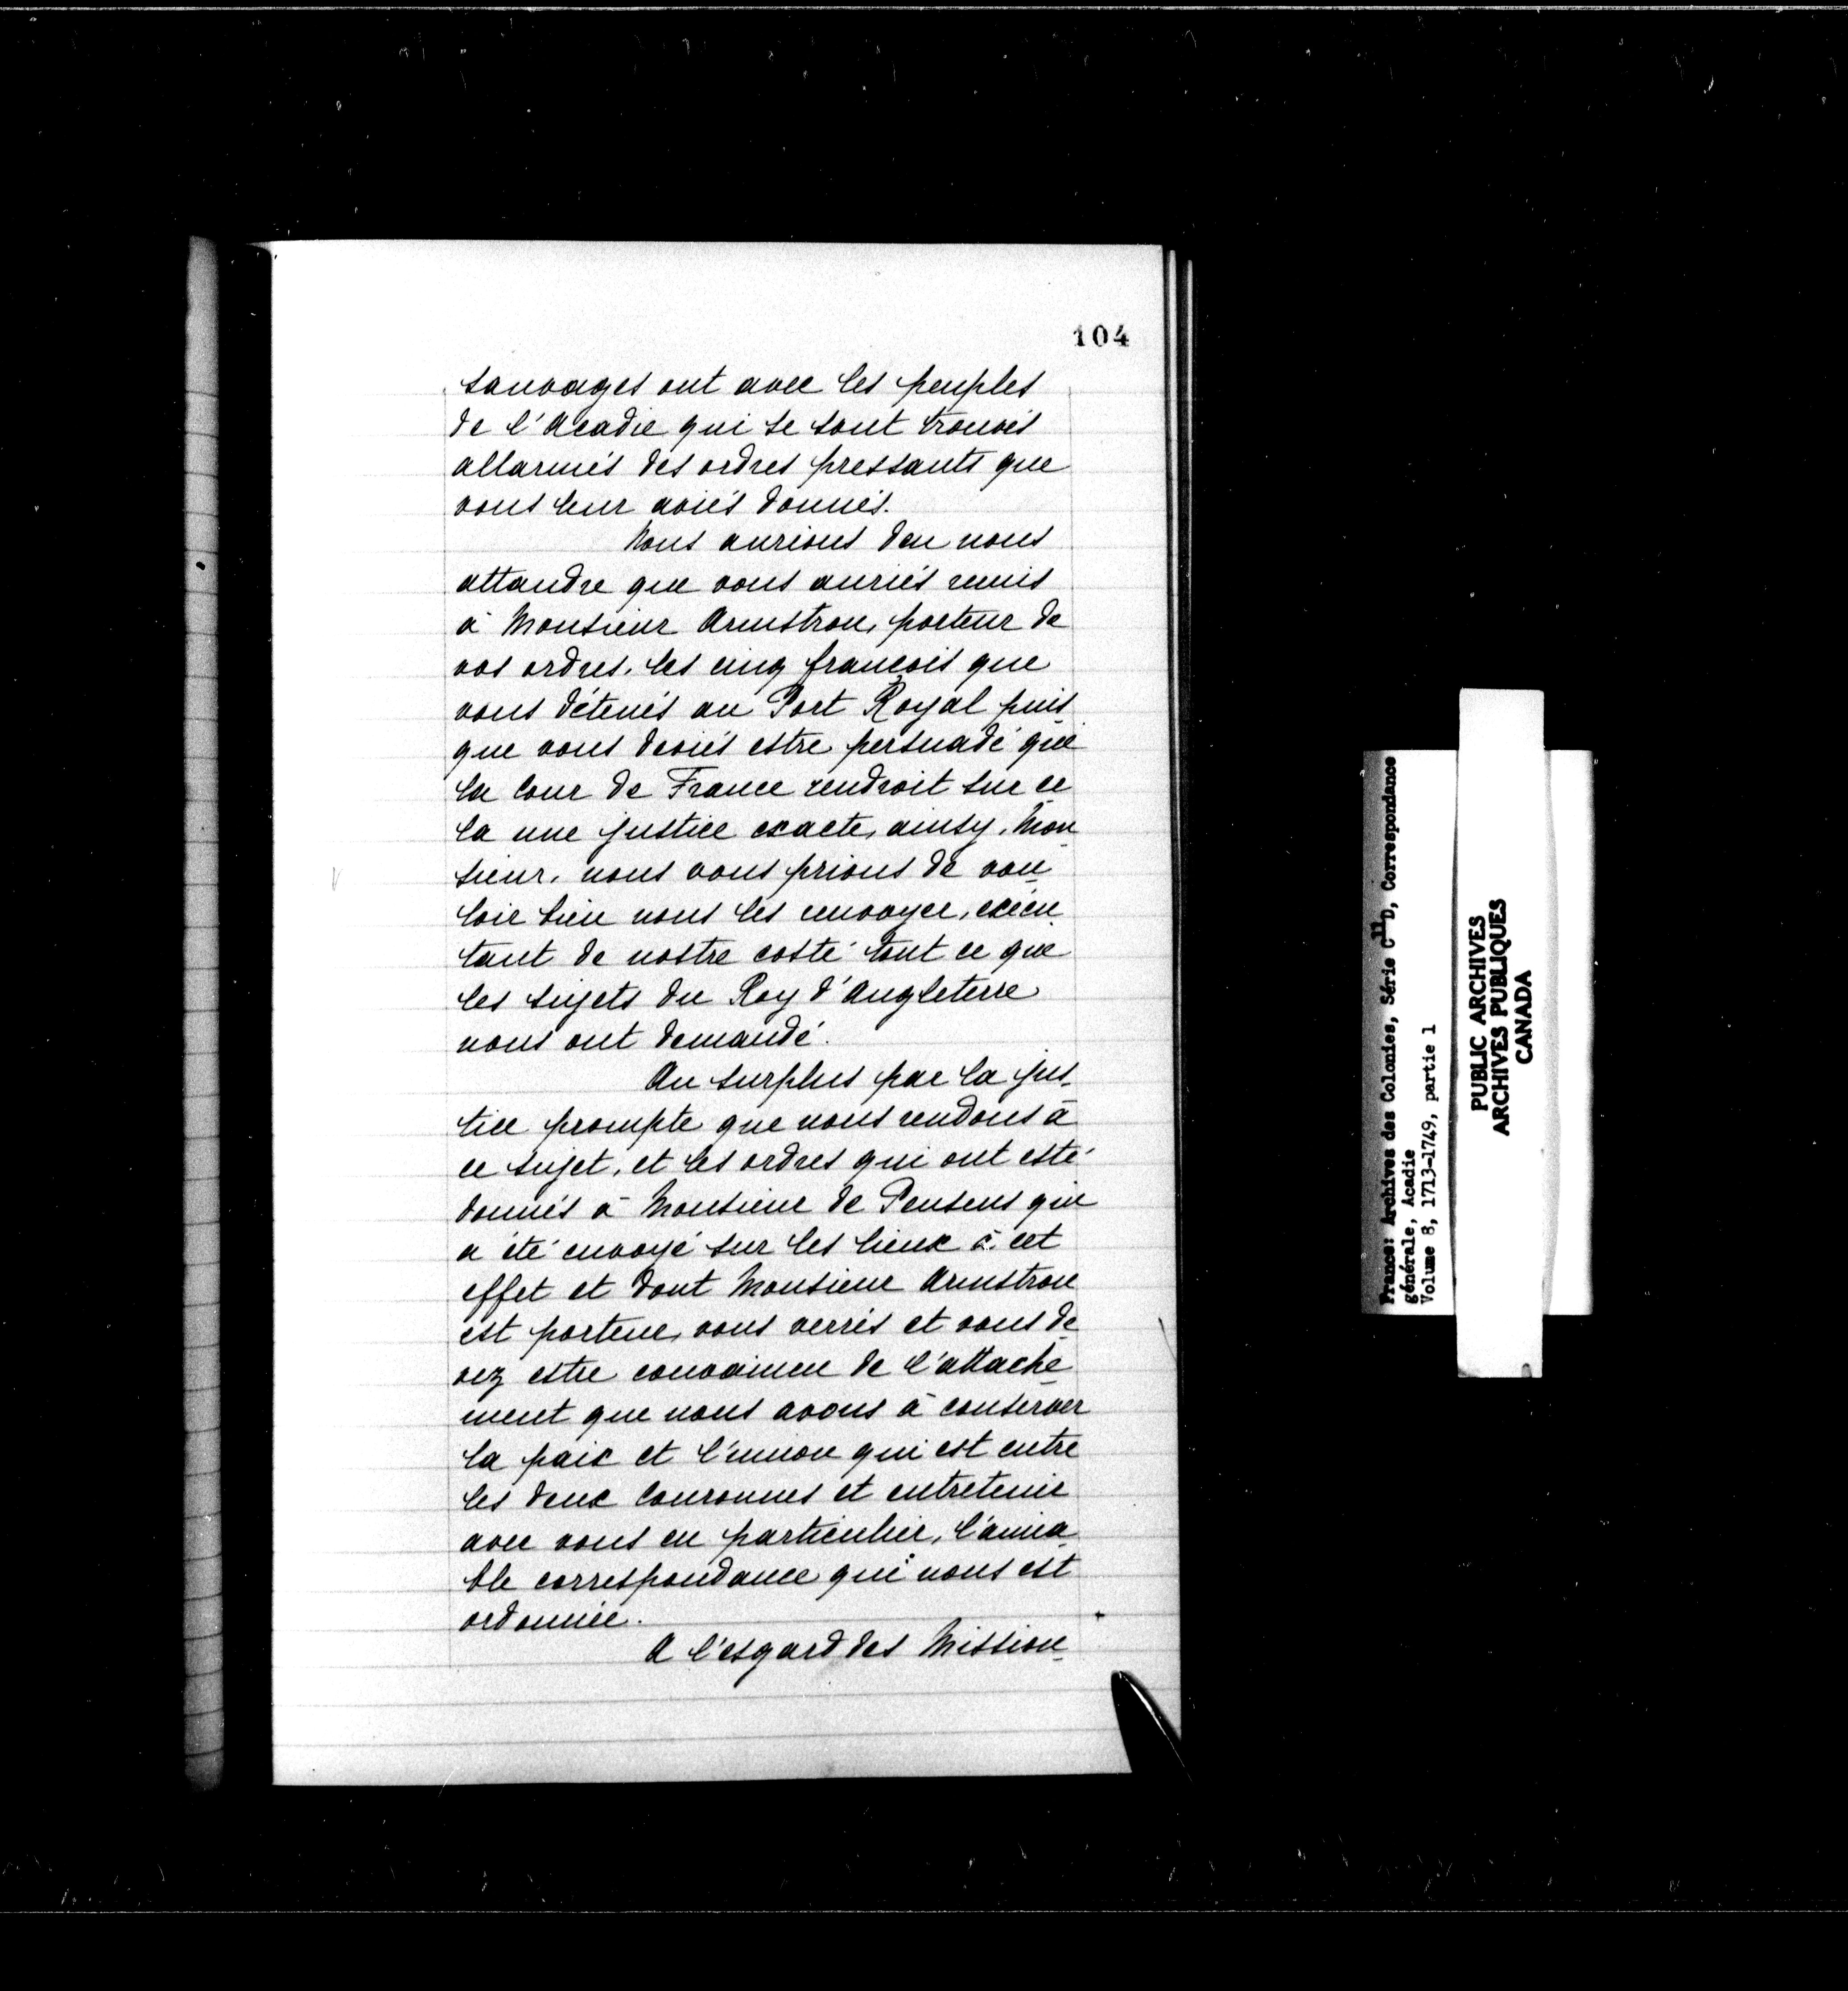 104
sauvages ont avec les peuples
de l'Acadie qui se sont trouvés
allarmés des ordres pressants que
vous leur aviés donnés.
Nous aurions deu nous
attandre que vous auriés remis
à Monsieur Armstron, porteur de
vos ordres, les cinq francois que
vous détenés au Port Royal puis
que vous deviés estre persuadé que
la Cour de France rendroit sur ce
la une justice exacte, ainsy, Mon
sieur, nous vous prions de vou
loir bien nous les renvoyer, exécu
tant de nostre costé tout ce que
les sujets du Roy d'Angleterre
nous ont demandé.
Au surplus par la jus-
tice prompte que nous rendons à
ce sujet, et les ordres qui ont esté
donnés à Monsieur de Pensens qui
a été envoyé sur les lieux à cet
effet et dont Monsieur Armstron
est porteur, vous verrés et vous de
vez estre convaincu de l'attache
ment que nous avons à conserver
la paix et l'union qui est entre
les deux Couronnes et entretenir
avec vous en particulier, l'aima
ble correspondance qui nous est
ordonnée.
A l'esgard des Mission-
France: Archives des Colonies, Série C11D, Correspondance
générale, Acadie
Volume 8, 1713-1749, partie 1
PUBLIC ARCHIVES
ARCHIVES PUBLIQUES
CANADA